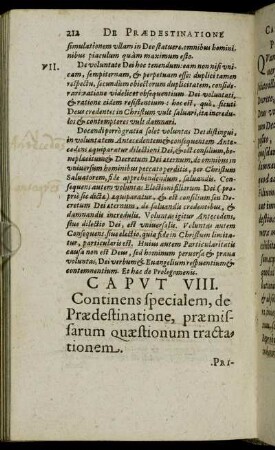 212 DE PRÆDESTINATIONE
simulationem ullam in Deo statuere, omnibus homi-
nibus piaculum quàm maximum esto.
VII. De voluntate Dei hoc tenendum: eam non nisi vni-
cam, sempiternam, & perpetuam esse: duplici tamen
respectu, secundum obiectorum duplicitatem, conside-
rari: ratione videlicet obsequentium Dei voluntati,
& ratione eidem resistentium: hoc est, quòd, sicuti
Deus credentes in Christum vult saluari, ita incredu-
los & contemptores vult damnari.
Docendi porrò gratia solet voluntas Dei distingui,
in voluntatem Antecedentem & consequentem. Ante-
cedens æquiparatur dilectioni Dei, & est consilium, be-
neplacitum & Decretum Dei æternum, de omnibus in
vniuersum hominibus peccato perditis, per Christum
Saluatorem, fide apprehendendum, saluandis. Con-
sequens autem voluntas Electioni filiorum Dei (propri-
è sic dicta) æquiparatur, & est consilium seu De-
cretum Dei æternum, de saluandis credentibus, &
damnandis incredulis. Voluntas igitur Antecedens,
siue dilectio Dei, est vniuersalis. Voluntas autem
Consequens siue electio, quia fide in Christum limita-
tur, particularis est. Huius autem Particularitatis
causa non est Deus, sed hominum peruersa & praua
voluntas, Dei verbum & Euangelium respuentium &
contemnentium. Et hæc de Prolegomenis.
CAPVT VIII.
Continens specialem, de
Prædestinatione, præmis-
sarum quæstionum tracta-
tionem.
PRI-